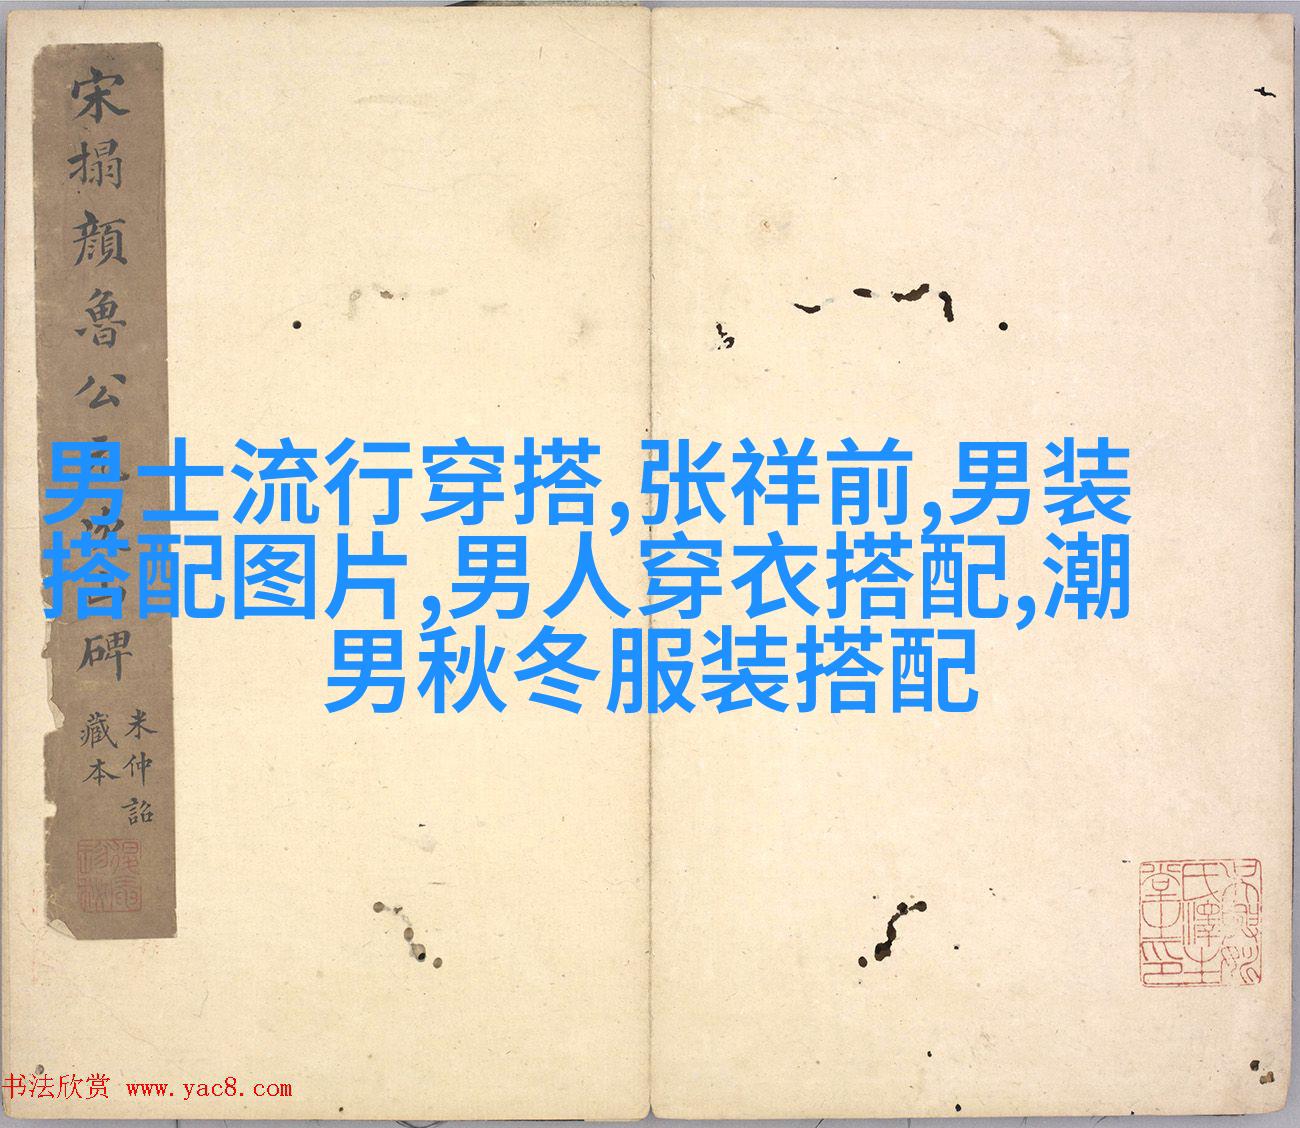 宋搨顔魯公
碑
米仲詔
藏本
男士流行穿搭,张祥前,男装
搭配图片,男人穿衣搭配,潮
男秋冬服装搭配
书法欣赏 www.yac8.com